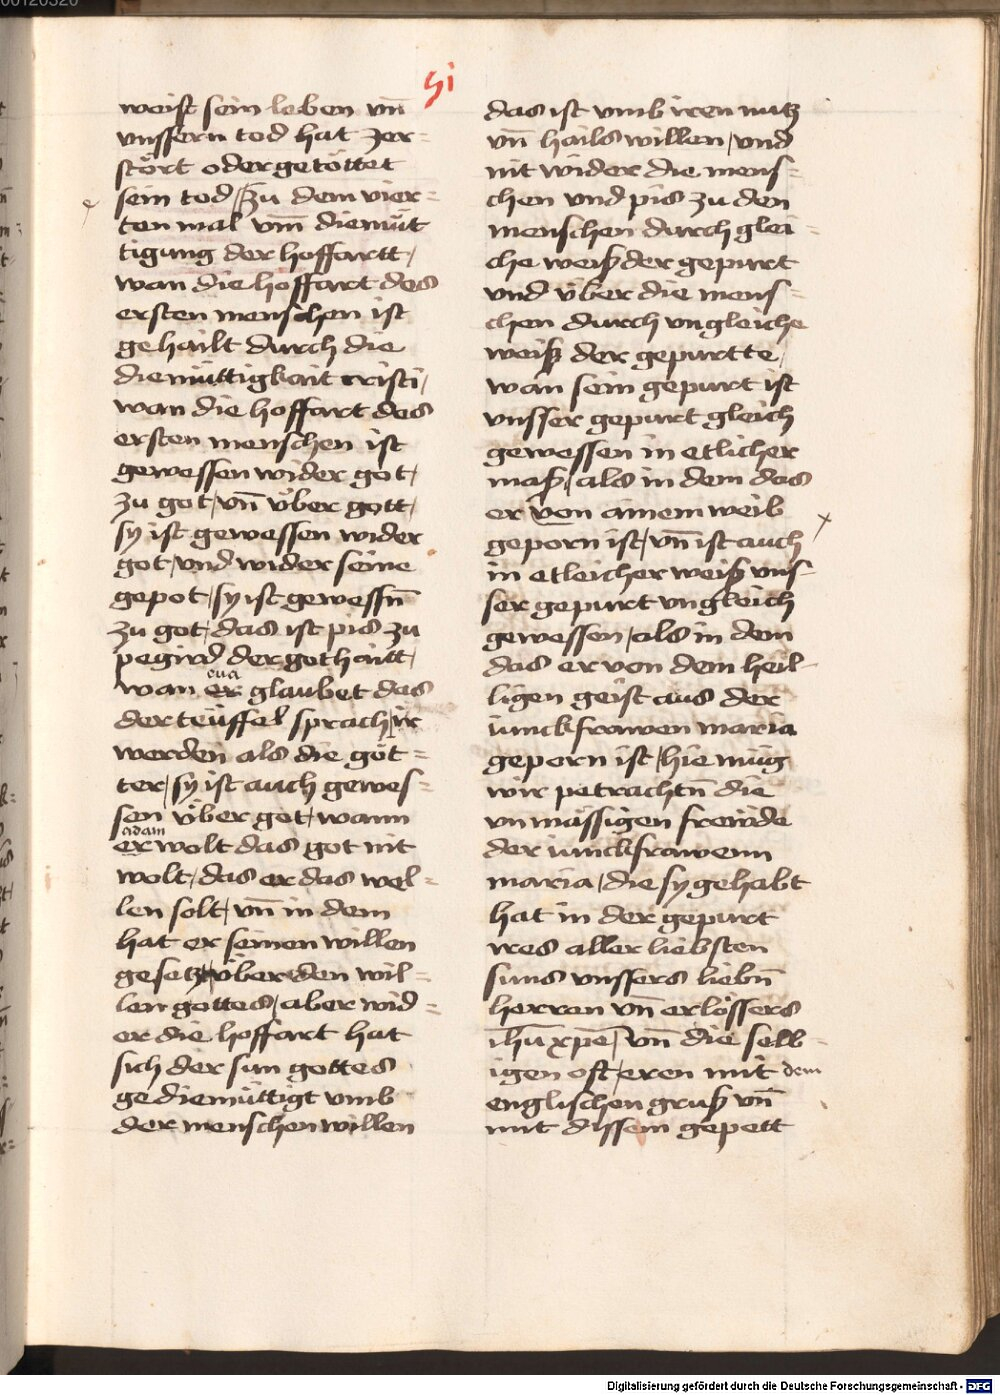 51
weist sein leben vn̄
vnssern tod hat zer=
stört oder getöttet
sein tod / Zu dem vier=
ten mal vm̄ diemüt
tigung der hoffartt /
wan die hoffart des
ersten menschen ist
gehailt durch die
diemüttigkait cristi /
wan die hoffart des
ersten menschen ist
gewessen wider got /
zu got / vn̄ vber gott /
sy ist gewessen wider
got / vnd wider seine
gepot / sy ist gewessn̄
zu got / das ist pis zu
pegird der gothaitt /
wan er eua glaubet das
der teüffel sprach / ir
werden als die göt=
ter / sy ist auch gewes=
sen vber got / wann
er adam wolt das got nit
wolt / das er das wel=
len solt / vn̄ in dem
hat er seinen willen
gesetzt vber den wil=
len gottes / aber wid=
er die hoffart hat
sich der sun gottes
gediemüttigt vmb
der menschen willen
das ist vmb iren nutz
vn̄ hails willen / vnd
nit wider die mens=
chen vnd pis zu den
menschen durch glei=
che weiß der gepurt
vnd über die mens=
chen durch vngleiche
weiß der gepurtte /
wan sein gepurt ist
vnsser gepurt gleich
gewessen in etlicher
maß / als in dem das
er von ainem weib
geporn ist / vn̄ ist auch
in etleicher weiß vns=
ser gepurt vngleich
gewessen / als in dem
das er von dem heil=
ligen geist aus der
iunckfrawen maria
geporn ist / hie müg
wir petrachtn̄ die
vnmässigen freüde
der iunckfrawenn
maria / die sy gehabt
hat in der gepurt
res aller liebsten
suns vnssers liebn̄
herren vn̄ erlössers
ihū xpē / vn̄ die selb=
igen oft / eren mit dem
englischen gruß vn̄
mit dissem gepett
Digitalisierung gefördert durch die Deutsche Forschungsgemeinschaft - DFG